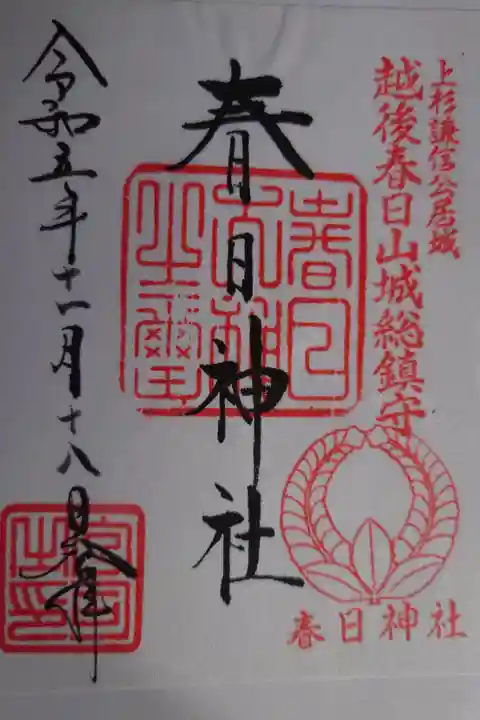 上杉謙信公居城
越後春日山城総鎮守
春日神社
春日神社
春日
大神
之璽
令和五年十一月十八日奉拝
宮司
之印